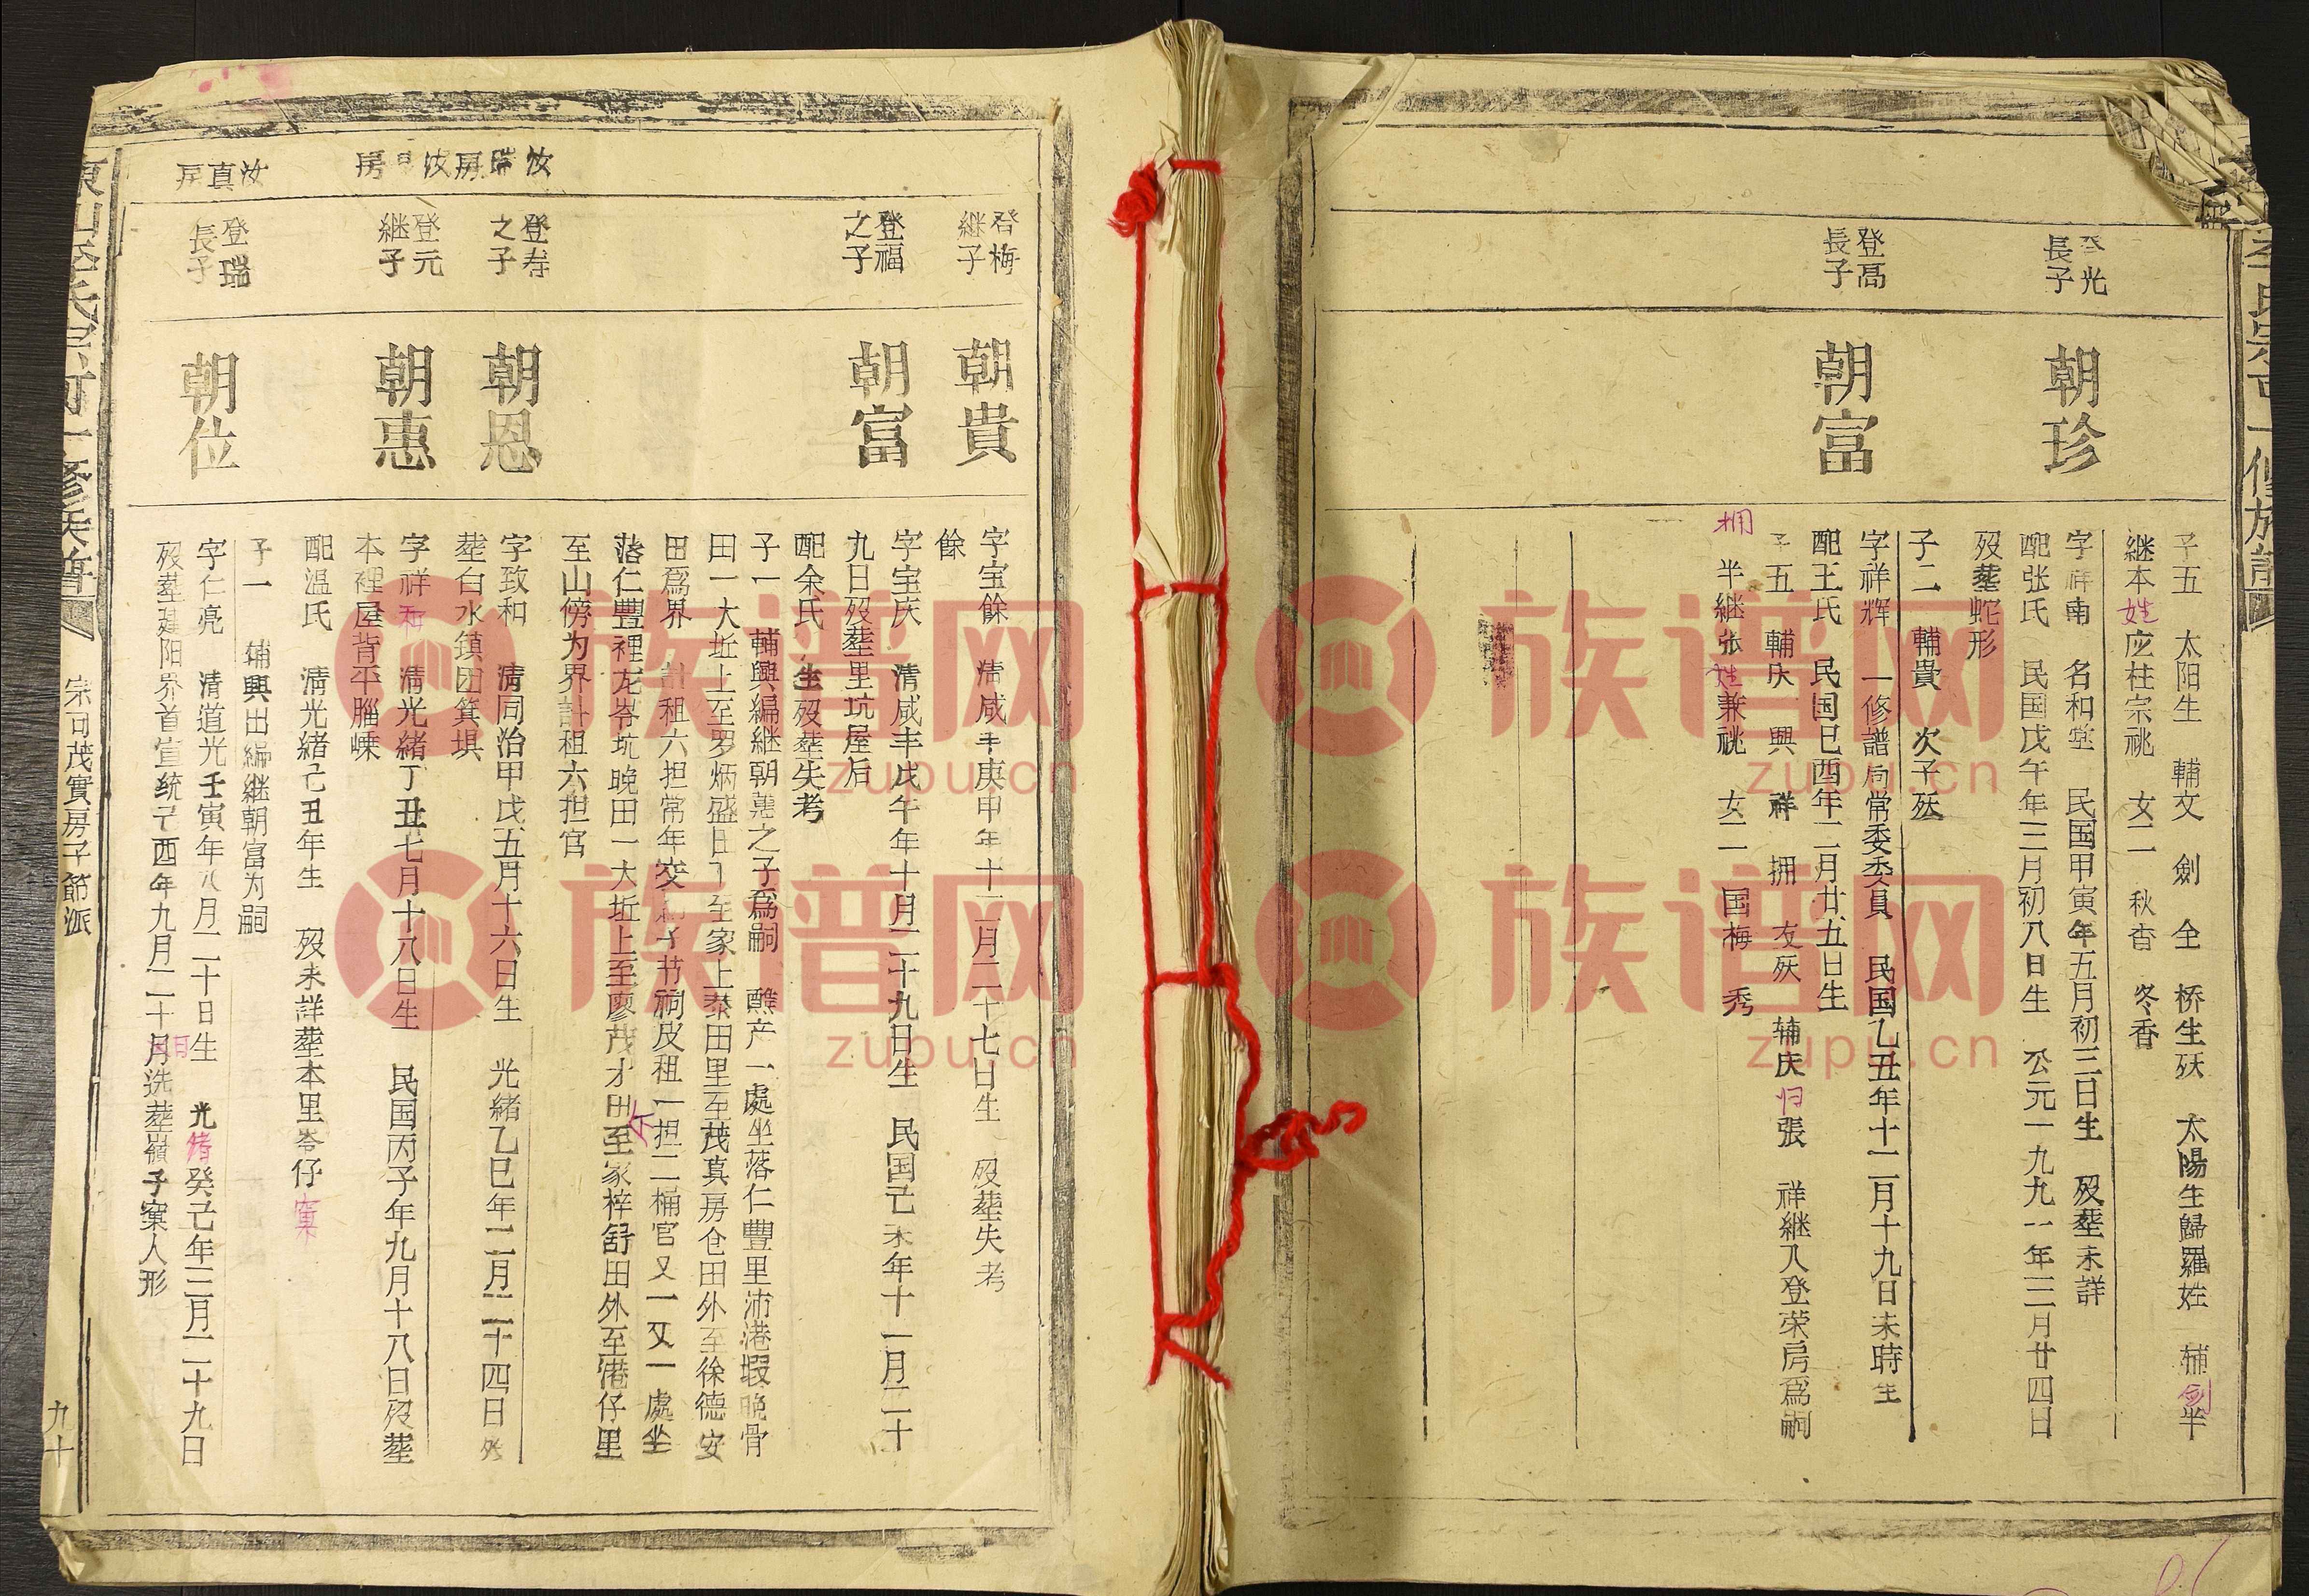 登光
長子
朝珍
子五 太阳生 輔文 劍 全 桥生殀 太陽生歸羅姓 辅剑半
继本姓应柱宗祧 女二 秋香 冬香
字祥南 名和堂 民国甲寅年五月初三日生 殁塟未詳
配张氏 民国戊午年三月初八日生 公元一九九一年三月廿四日
殁塟蛇形
登高
長子
朝富
子二 輔貴 次子殀
字祥辉 一修譜局常委委員 民国乙丑年十二月十九日未時生
配王氏 民国己酉年二月廿五日生
子五 輔庆 興 祥 拥 友殀 辅庆归張 祥继入登荣房爲嗣
拥半继张姓兼祧 女二 国梅 秀
登梅
继子
朝貴
字宝餘 清咸丰庚申年十二月二十七日生 殁塟失考
餘
登福
之子
朝富
字宝庆 清咸丰戊午年十月二十九日生 民国己未年十一月二十
九日殁塟里坑屋后
配余氏 生殁塟失考
子一 輔興編继朝惠之子爲嗣 醮产一處坐落仁豐里沛港塅晚骨
田一大坵上至罗炳盛田下至家上泰田里至茂真房仓田外至徐德安
田爲界 計租六担常年交和子书祠皮租一担二桶官又一又一處坐
落仁豐裡龙岺坑晚田一大坵上至廖茂才田下至家梓舒田外至港仔里
至山傍为界計租六担官
汝瑞房
登寿
之子
朝恩
字致和 清同治甲戌五月十六日生 光緒乙巳年二月二十四日殀
塟白水鎮田箕垻
房
登元
继子
朝惠
字祥和 清光緒丁丑七月十八日生 民国丙子年九月十八日殁塟
本裡屋背平腦嵊
配温氏 清光緒己丑年生 殁未詳塟本里岺仔窠
子一 辅興出編继朝富为嗣
汝真房
登瑞
長子
朝位
字仁亮 清道光壬寅年八月二十日生 光緒癸己年三月二十九日
殁塟建阳界首宣统己酉年九月二十日洗塟嶺子窠人形
宗可茂實房子節派
九十
族谱网
zupu.cn
族谱网
zupu.cn
族谱网
zupu.cn
族谱网
zupu.cn